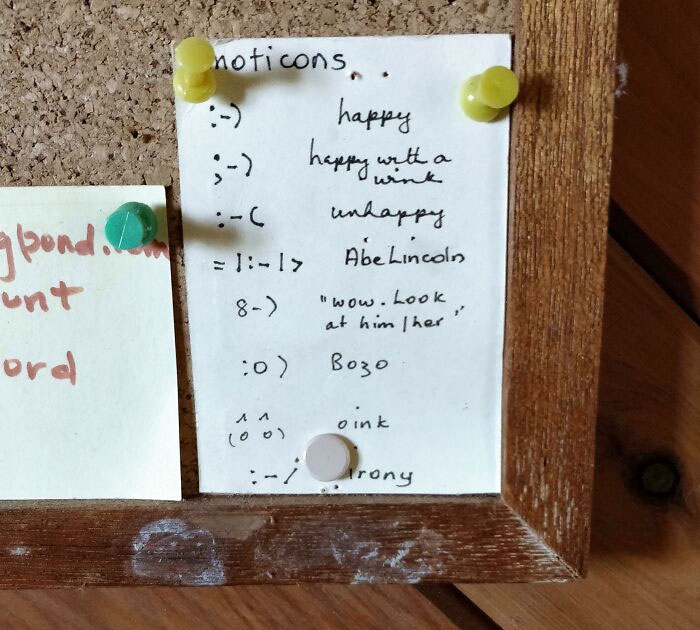 noticons
:-) happy
;-) happy with a
wink
:-( unhappy
=|:-|> Abe Lincoln
8-) "wow. Look
at him/her"
:o) Bozo
^ ^
(o o) oink
:-/ irony
unt
ord